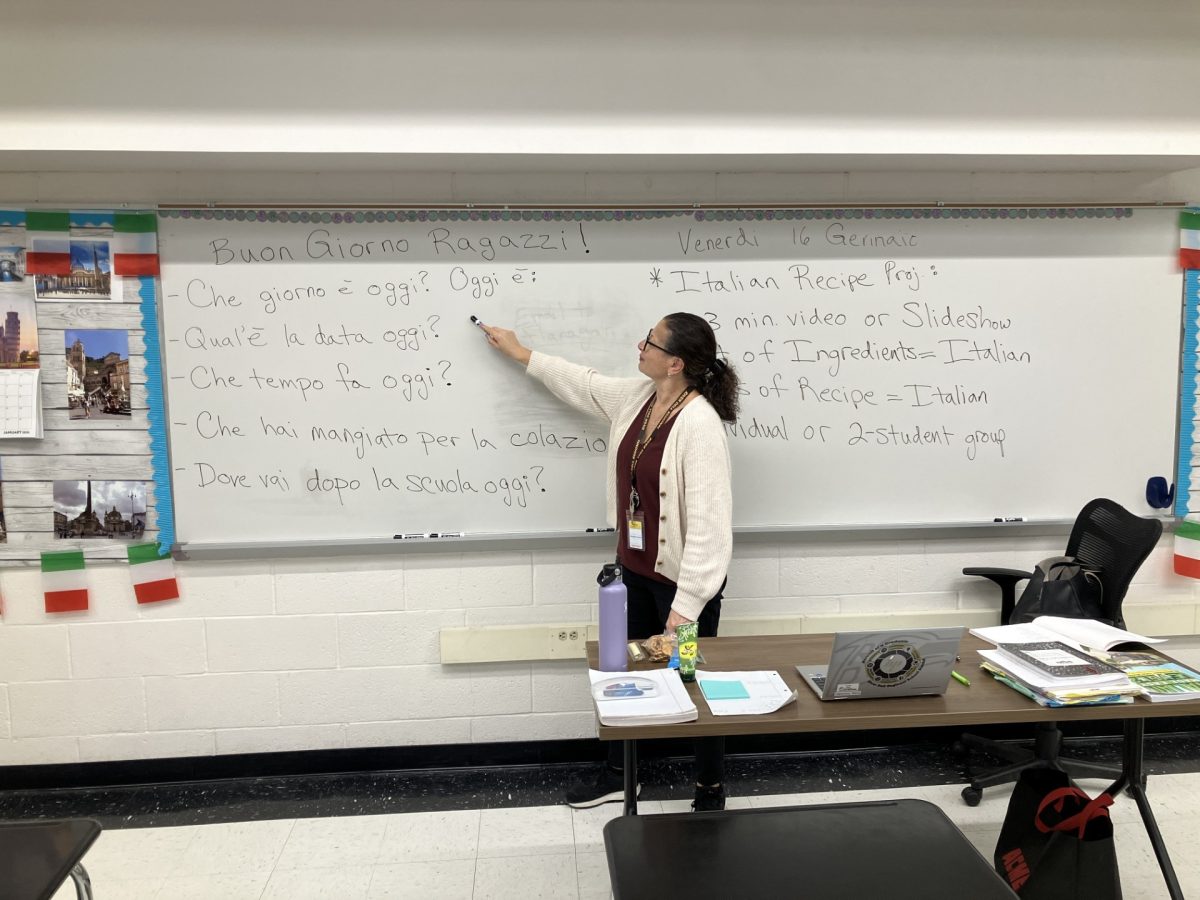 Buon Giorno Ragazzi!
- Che giorno è oggi? Oggi è:
- Qual'è la data oggi?
- Che tempo fa oggi?
- Che hai mangiato per la colazio
- Dove vai dopo la scuola oggi?
Venerdi 16 Gennaio
* Italian Recipe Proj.:
3 min. video or Slideshow
of Ingredients = Italian
of Recipe = Italian
vidual or 2-student group
JANUARY
ACME